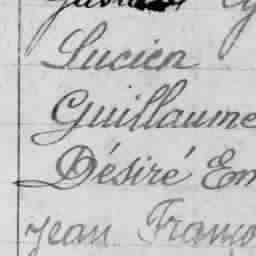 Lucien
Guillaume
Désiré Em
Jean Franço